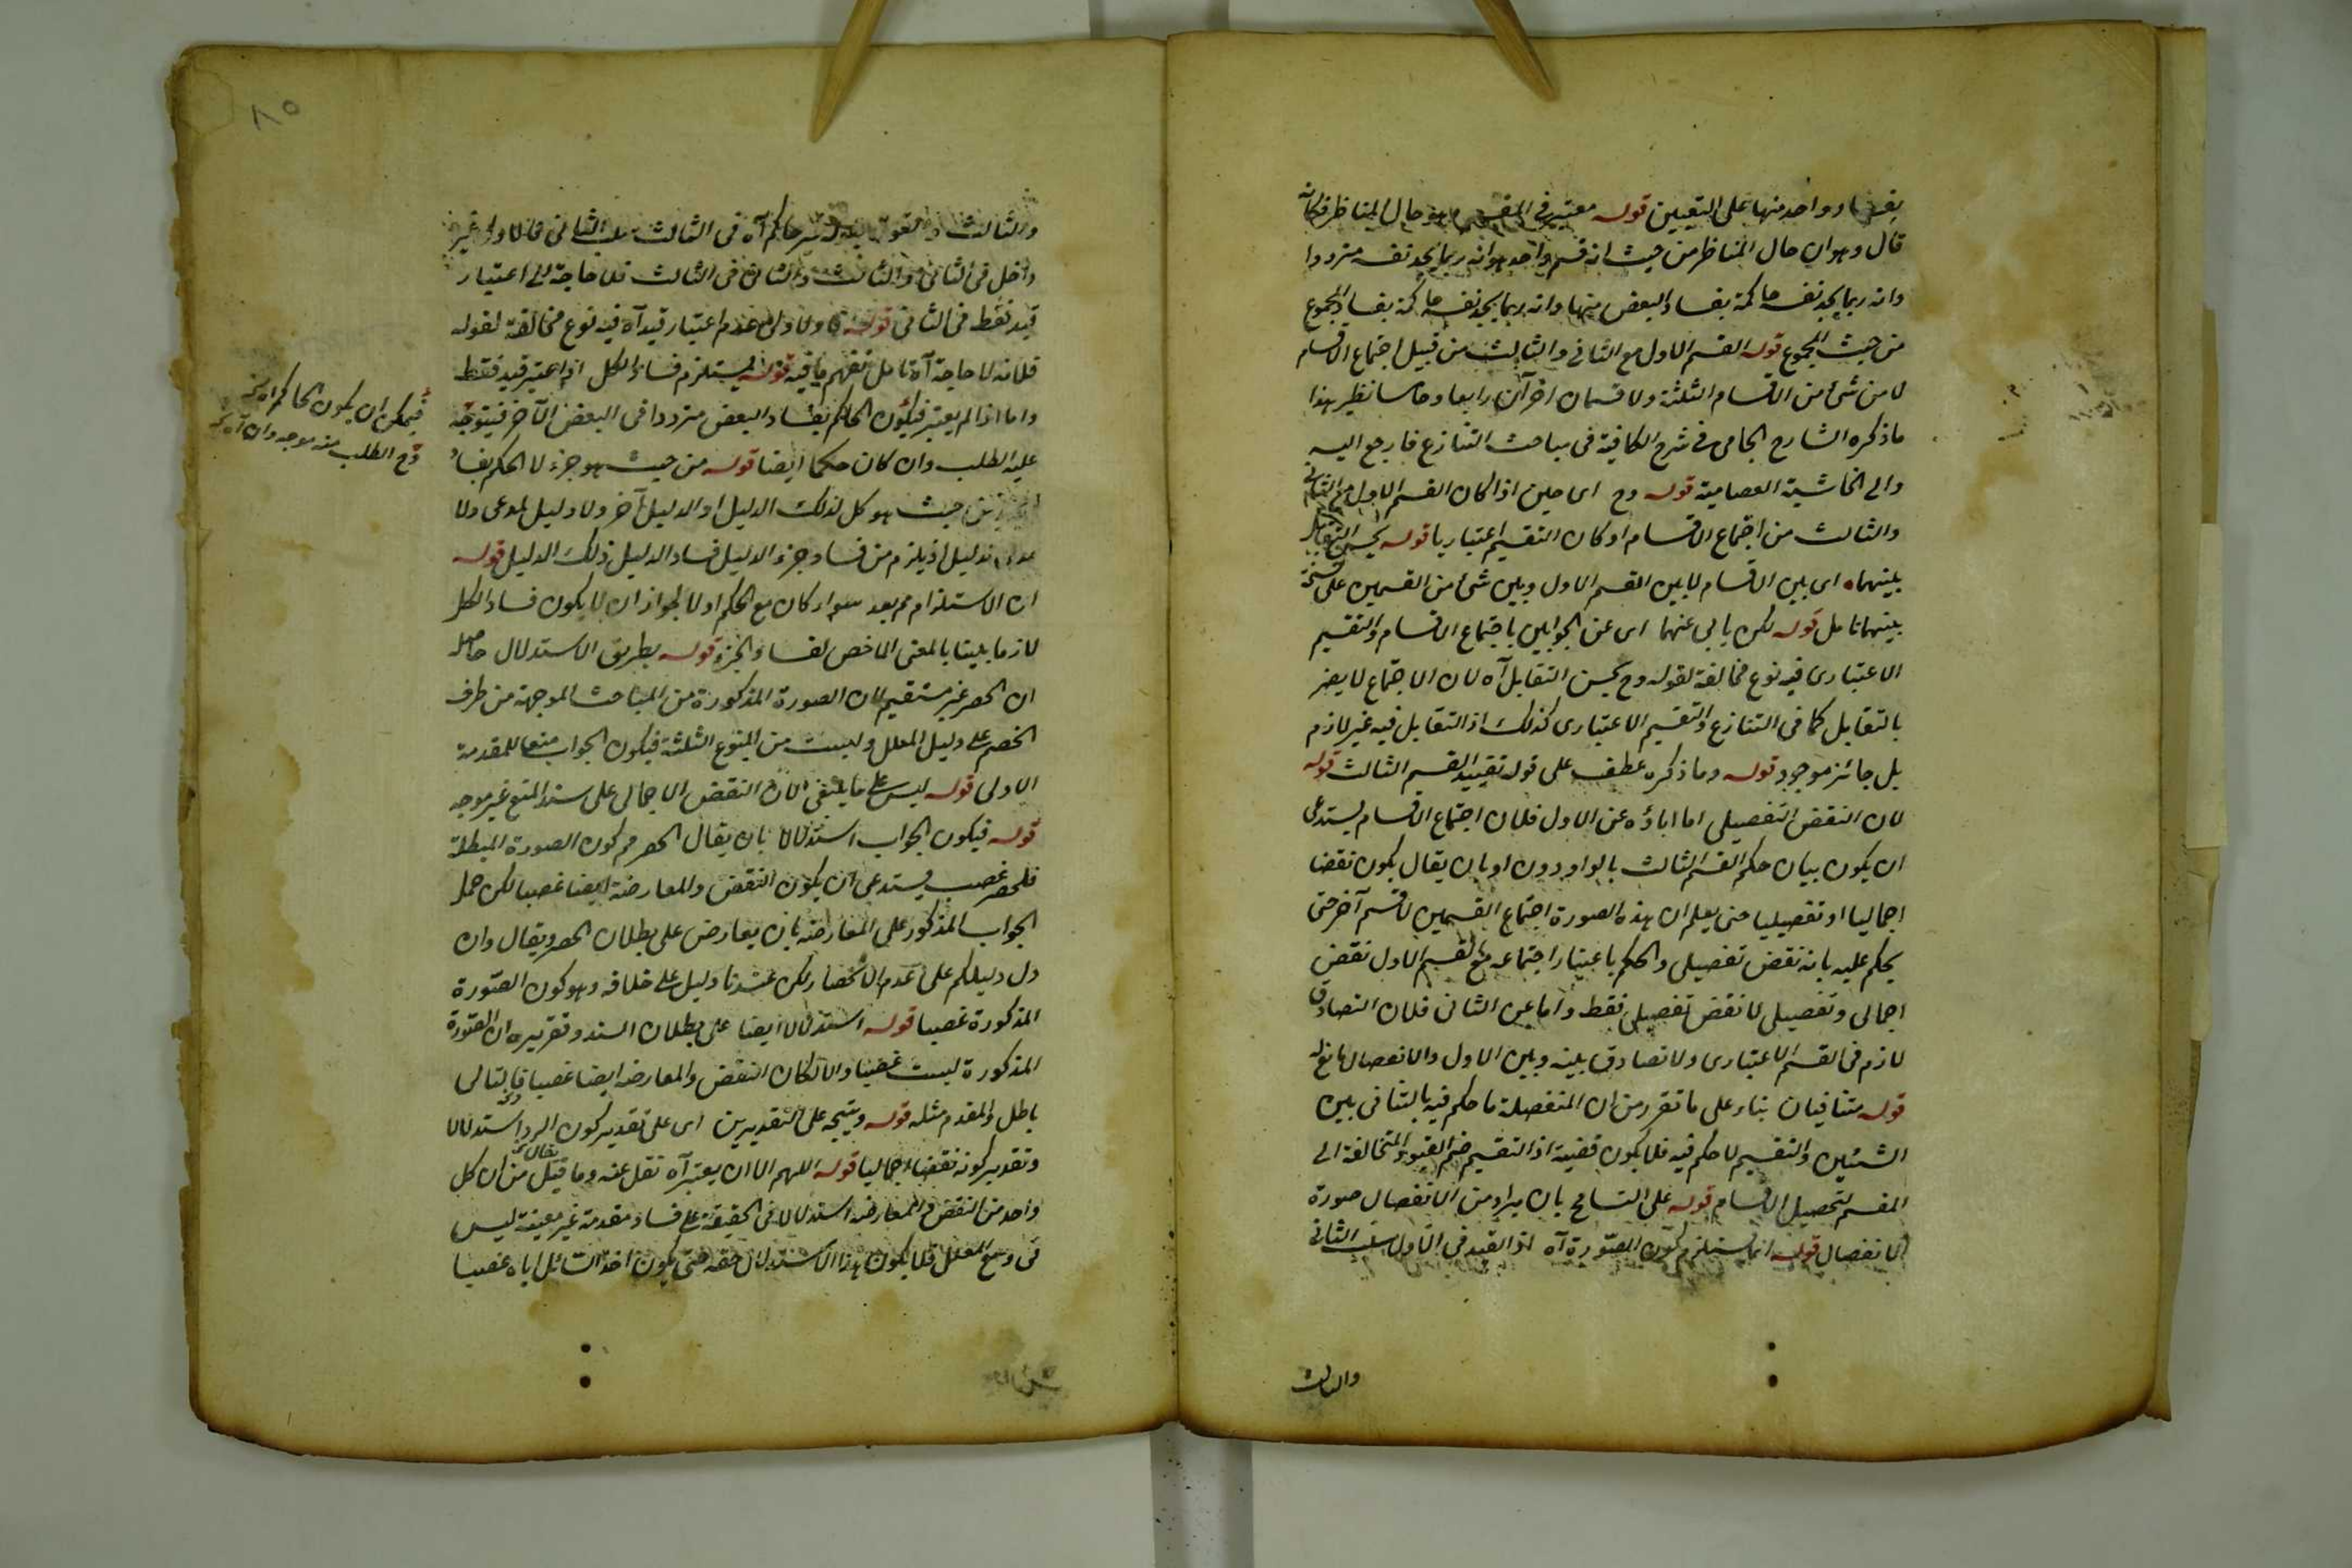 بفساد واحد منها على التعيين قوله معتبر في المقسم وهو حال المناظر فكانه
قال وهو ان حال المناظر من حيث انه قسم واحد هو انه ربما يجد نفسه مترددا
وانه ربما يجد نفسه حاكمة بفساد البعض منها وانه ربما يجد نفسه حاكمة بفساد المجموع
من حيث المجموع قوله القسم الاول مع الثاني والثالث من قبيل اجتماع الاقسام
لا من شئ من الاقسام الثلثة ولا قسمان اخران رابعا وخامسا نظير هذا
ما ذكره الشارح الجامى فى شرح الكافية فى مباحث التنازع فارجع اليه
والى الحاشية العصامية قوله وح اى حين اذا كان القسم الاول مع الثانى
والثالث من اجتماع الاقسام او كان التقسيم اعتباريا قوله يحسن التقابل
بينهما اى بين الاقسام لا بين القسم الاول وبين شئ من القسمين على نسخة
بينهما تأمل قوله لكن يابى عنهما اى عن الجوابين باجتماع الاقسام والتقسيم
الاعتبارى فيه نوع مخالفة لقوله وح يحسن التقابل آه لان الاجتماع لا يضر
بالتقابل كما فى التنازع والتقسيم الاعتبارى كذلك اذ التقابل فيه غير لازم
بل جائز موجود قوله وما ذكره عطف على قوله تقييد القسم الثالث قوله
لان النقض التفصيلى اما اباؤه عن الاول فلان اجتماع الاقسام يستدعى
ان يكون بيان حكم القسم الثالث بالواو دون او بان يقال يكون نقضا
اجماليا او تفصيليا حتى يعلم ان هذه الصورة اجتماع القسمين لا قسم آخر حتى
يحكم عليه بانه نقض تفصيلى والحكم باعتبار اجتماعه مع القسم الاول نقض
اجمالى وتفصيلى لا نقض تفصيلى فقط واما عن الثانى فلان التصادق
لازم فى القسم الاعتبارى ولا تصادق بينه وبين الاول والانفصال مانع له
قوله متنافيان بناء على ما تقرر من ان المنفصلة ما حكم فيه بالتنافى بين
الشئين والتقسيم لا حكم فيه فلا يكون قضية اذ التقسيم ضم القيود المتخالفة الى
المقسم لتحصيل الاقسام قوله على التسامح بان يراد من الانفصال صورة
الانفصال قوله انما يستلزم كون الصورة آه اذ القيد فى الاول سلب الثانى
والثالث
والثالث آه فى الثالث سلب الثانى فالاول غير
داخل فى الثانى والثالث والثانى فى الثالث فلا حاجة الى اعتبار
قيد فقط فى الثانى قوله والاولى عدم اعتبار قيد آه فيه نوع مخالفة لقوله
فلانه لا حاجة آه تأمل تفهم ما فيه قوله ليستلزم فساد الكل اذا اعتبر قيد فقط
واما اذا لم يعتبر فيكون الحاكم بفساد البعض مترددا فى البعض الآخر فيتوجه
عليه الطلب وان كان حكما ايضا قوله من حيث هو جزء لا الحكم بفساد
من حيث هو كل لذلك الدليل او الدليل آخر ولا دليل لمدعى ولا
مدعى لدليل اذ يلزم من فساد جزء الدليل فساد الدليل ذلك الدليل قوله
ان الاستلزام مم بعد سواء كان مع الحكم او لا لجواز ان لا يكون فساد الكل
لازما بينا بالمعنى الاخص لفساد الجزء قوله بطريق الاستدلال حاصله
ان الحصر غير مستقيم لان الصورة المذكورة من المباحث الموجهة من طرف
الخصم على دليل المعلل وليست من المنوع الثلثة فيكون الجواب منعا للمقدمة
الاولى قوله ليس على ما ينبغى لان النقض الاجمالى على سند المنع غير موجه
قوله فيكون الجواب استدلالا بان يقال الحصر مم كون الصورة المبطلة
للحصر غصب فيستدعى ان يكون النقض والمعارضة ايضا غصبا لكن حمل
الجواب المذكور على المعارضة بان يعارض على بطلان الحصر ويقال وان
دل دليلكم على عدم الانحصار لكن عندنا دليل على خلافه وهو كون الصورة
المذكورة غصبا قوله استدلالا ايضا على بطلان السند وتقريره ان الصورة
المذكورة ليست غصبا والا لكان النقض والمعارضه ايضا غصبا فالتالى
باطل والمقدم مثله قوله ويتجه على التقديرين اى على تقدير كون الرد استدلالا
وتقدير كونه نقضا اجماليا قوله اللهم الا ان يعتبر آه نقل عنه وما قيل من ان كل
واحد من النقض والمعارضه استدلال فى الحقيقة على فساد مقدمة غير معينة ليس
فى وسع المعلل فلا يكون هذا الاستدلال حقه حتى يكون اخذ السائل اياه غصبا
فيمكن ان يكون الحاكم اه
وح الطلب منه موجه وان آه
٨٥